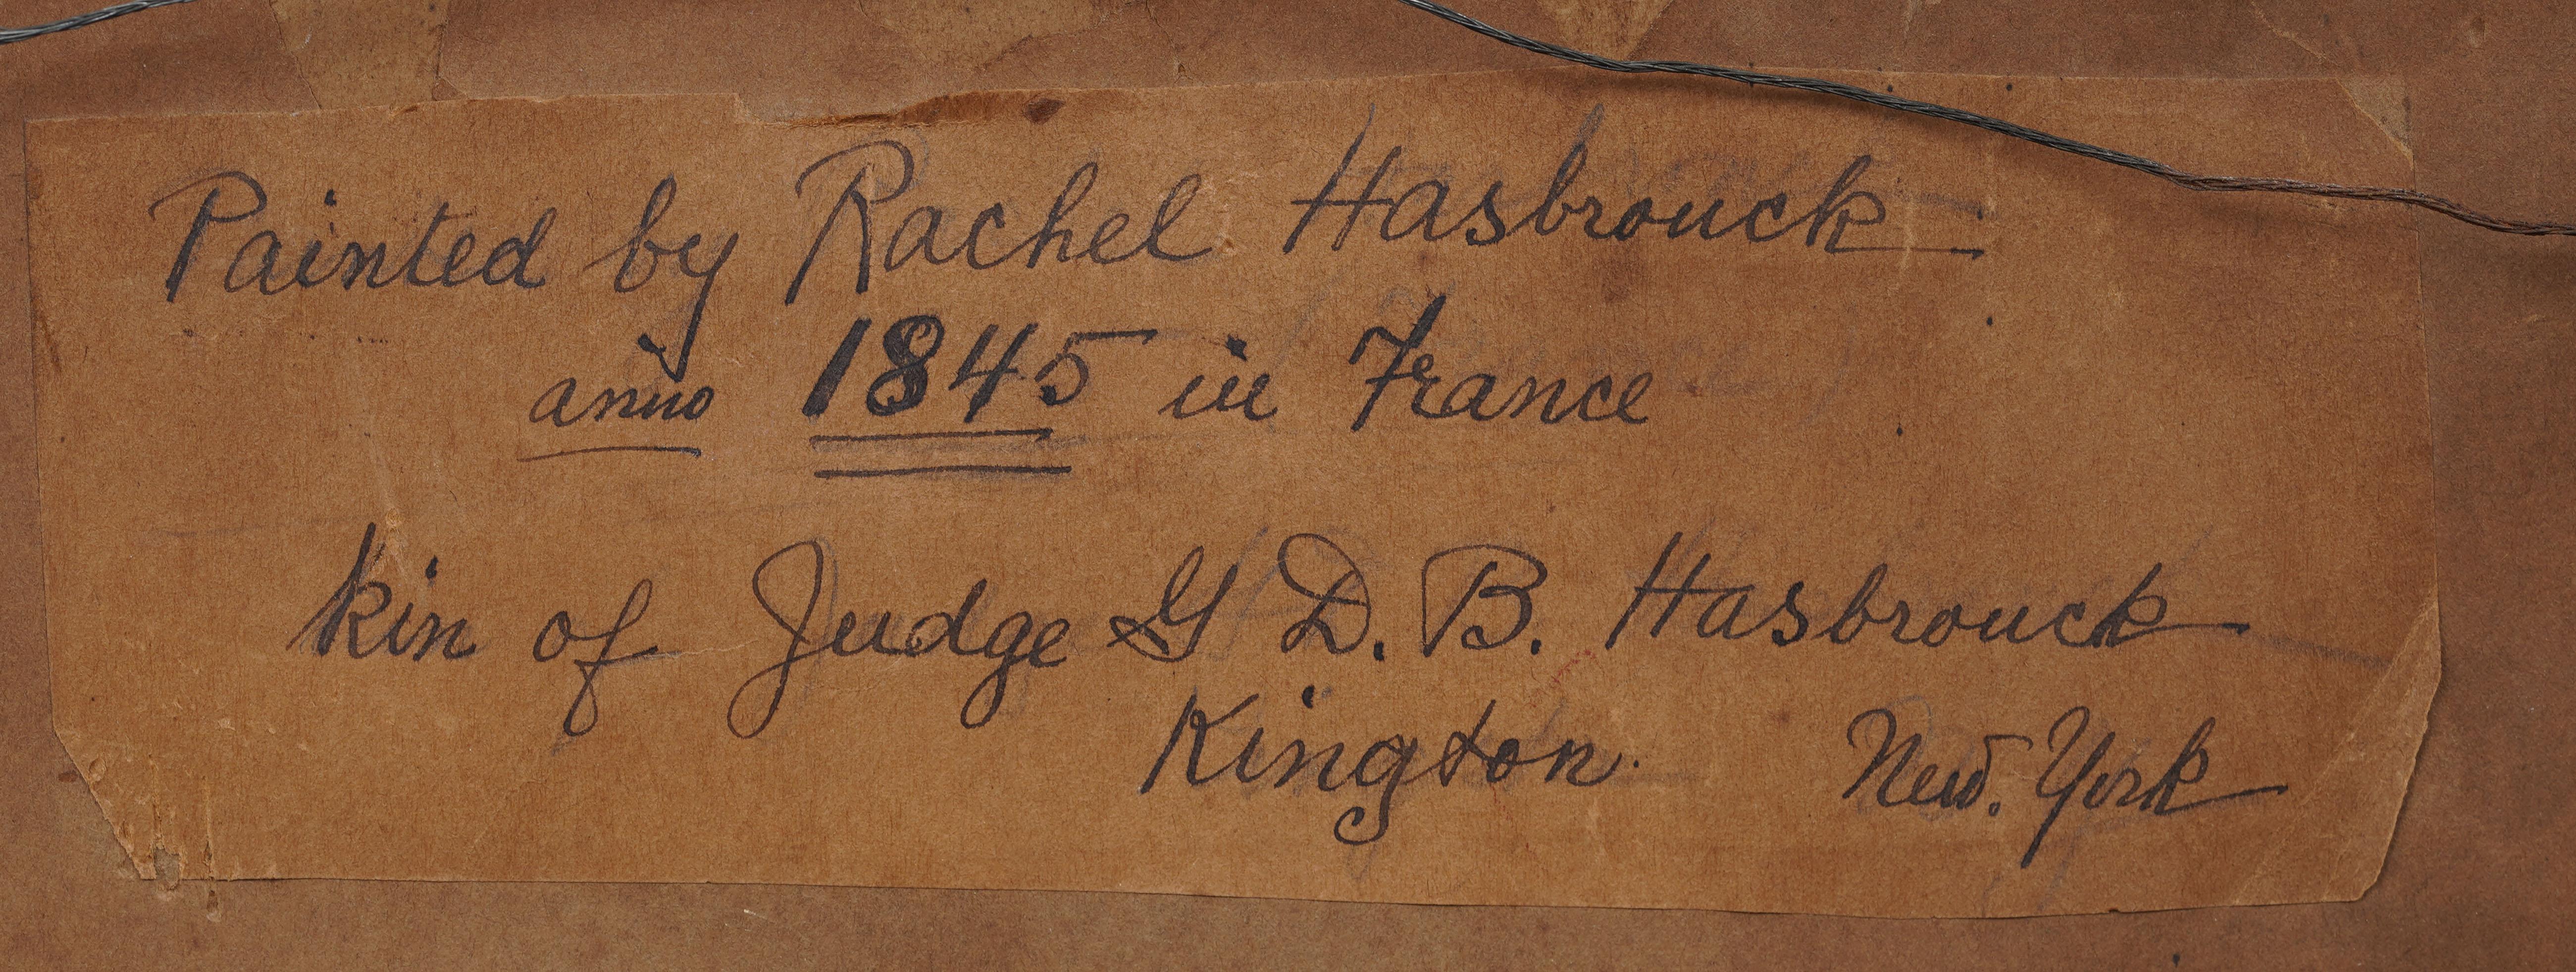 Painted by Rachel Hasbrouck
anno 1845 in France
kin of Judge G D. B. Hasbrouck
Kington. New. York